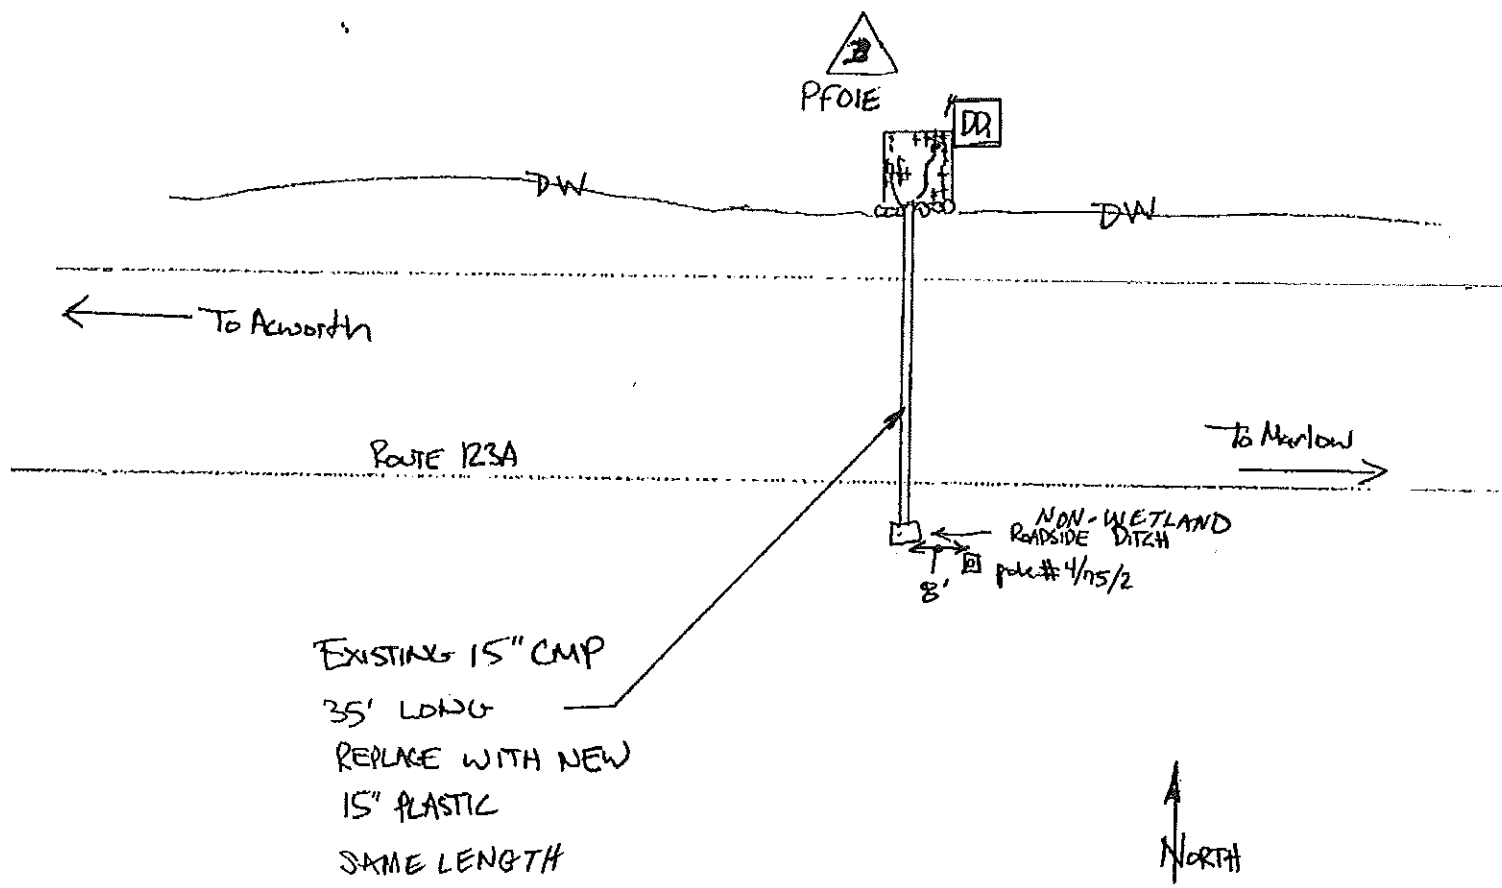 PFO1E
DD
DW
DW
To Acworth
ROUTE 123A
To Marlow
NON-WETLAND
ROADSIDE DITCH
8'
pole# 4/75/2
EXISTING 15" CMP
35' LONG
REPLACE WITH NEW
15" PLASTIC
SAME LENGTH
NORTH